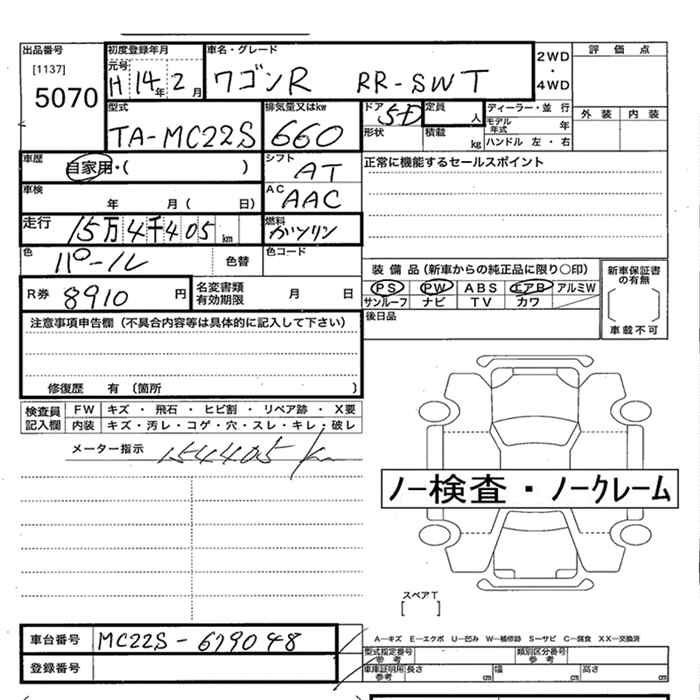 出品番号 初度登録年月 車名・グレード 2WD ・ 4WD 評価点
[1137] 元号 H 14年 2月 ワゴンR RR-SWT
5070 型式 排気量又はkw ドア 5D 定員 人 ディーラー・並行 外装 内装
TA-MC22S 660 形状 積載 kg モデル年式 年
ハンドル 左・右
車歴 自家用・( ) シフト AT 正常に機能するセールスポイント
車検 年 月( 日) AC AAC
走行 15万4千405km 燃料 ガソリン
色 パール 色替 色コード
装備品(新車からの純正品に限り○印) 新車保証書の有無
R券 8910円 名変書類有効期限 月 日 PS PW ABS エアB アルミW
サンルーフ ナビ TV カワ 車載不可
注意事項申告欄(不具合内容等は具体的に記入して下さい) 後日品
修復歴 有 (箇所 )
検査員記入欄 FW キズ・飛石・ヒビ割・リペア跡・X要
内装 キズ・汚レ・コゲ・穴・スレ・キレ・破レ
メーター指示 154405km
ノー検査・ノークレーム
スペアT
[ ]
車台番号 MC22S-679048 A-キズ E-エクボ U-凹み W-補修跡 S-サビ C-腐食 XX-交換済
型式指定番号 参考 類別区分番号 参考
登録番号 車庫証明用 参考 長さ cm 幅 cm 高さ cm